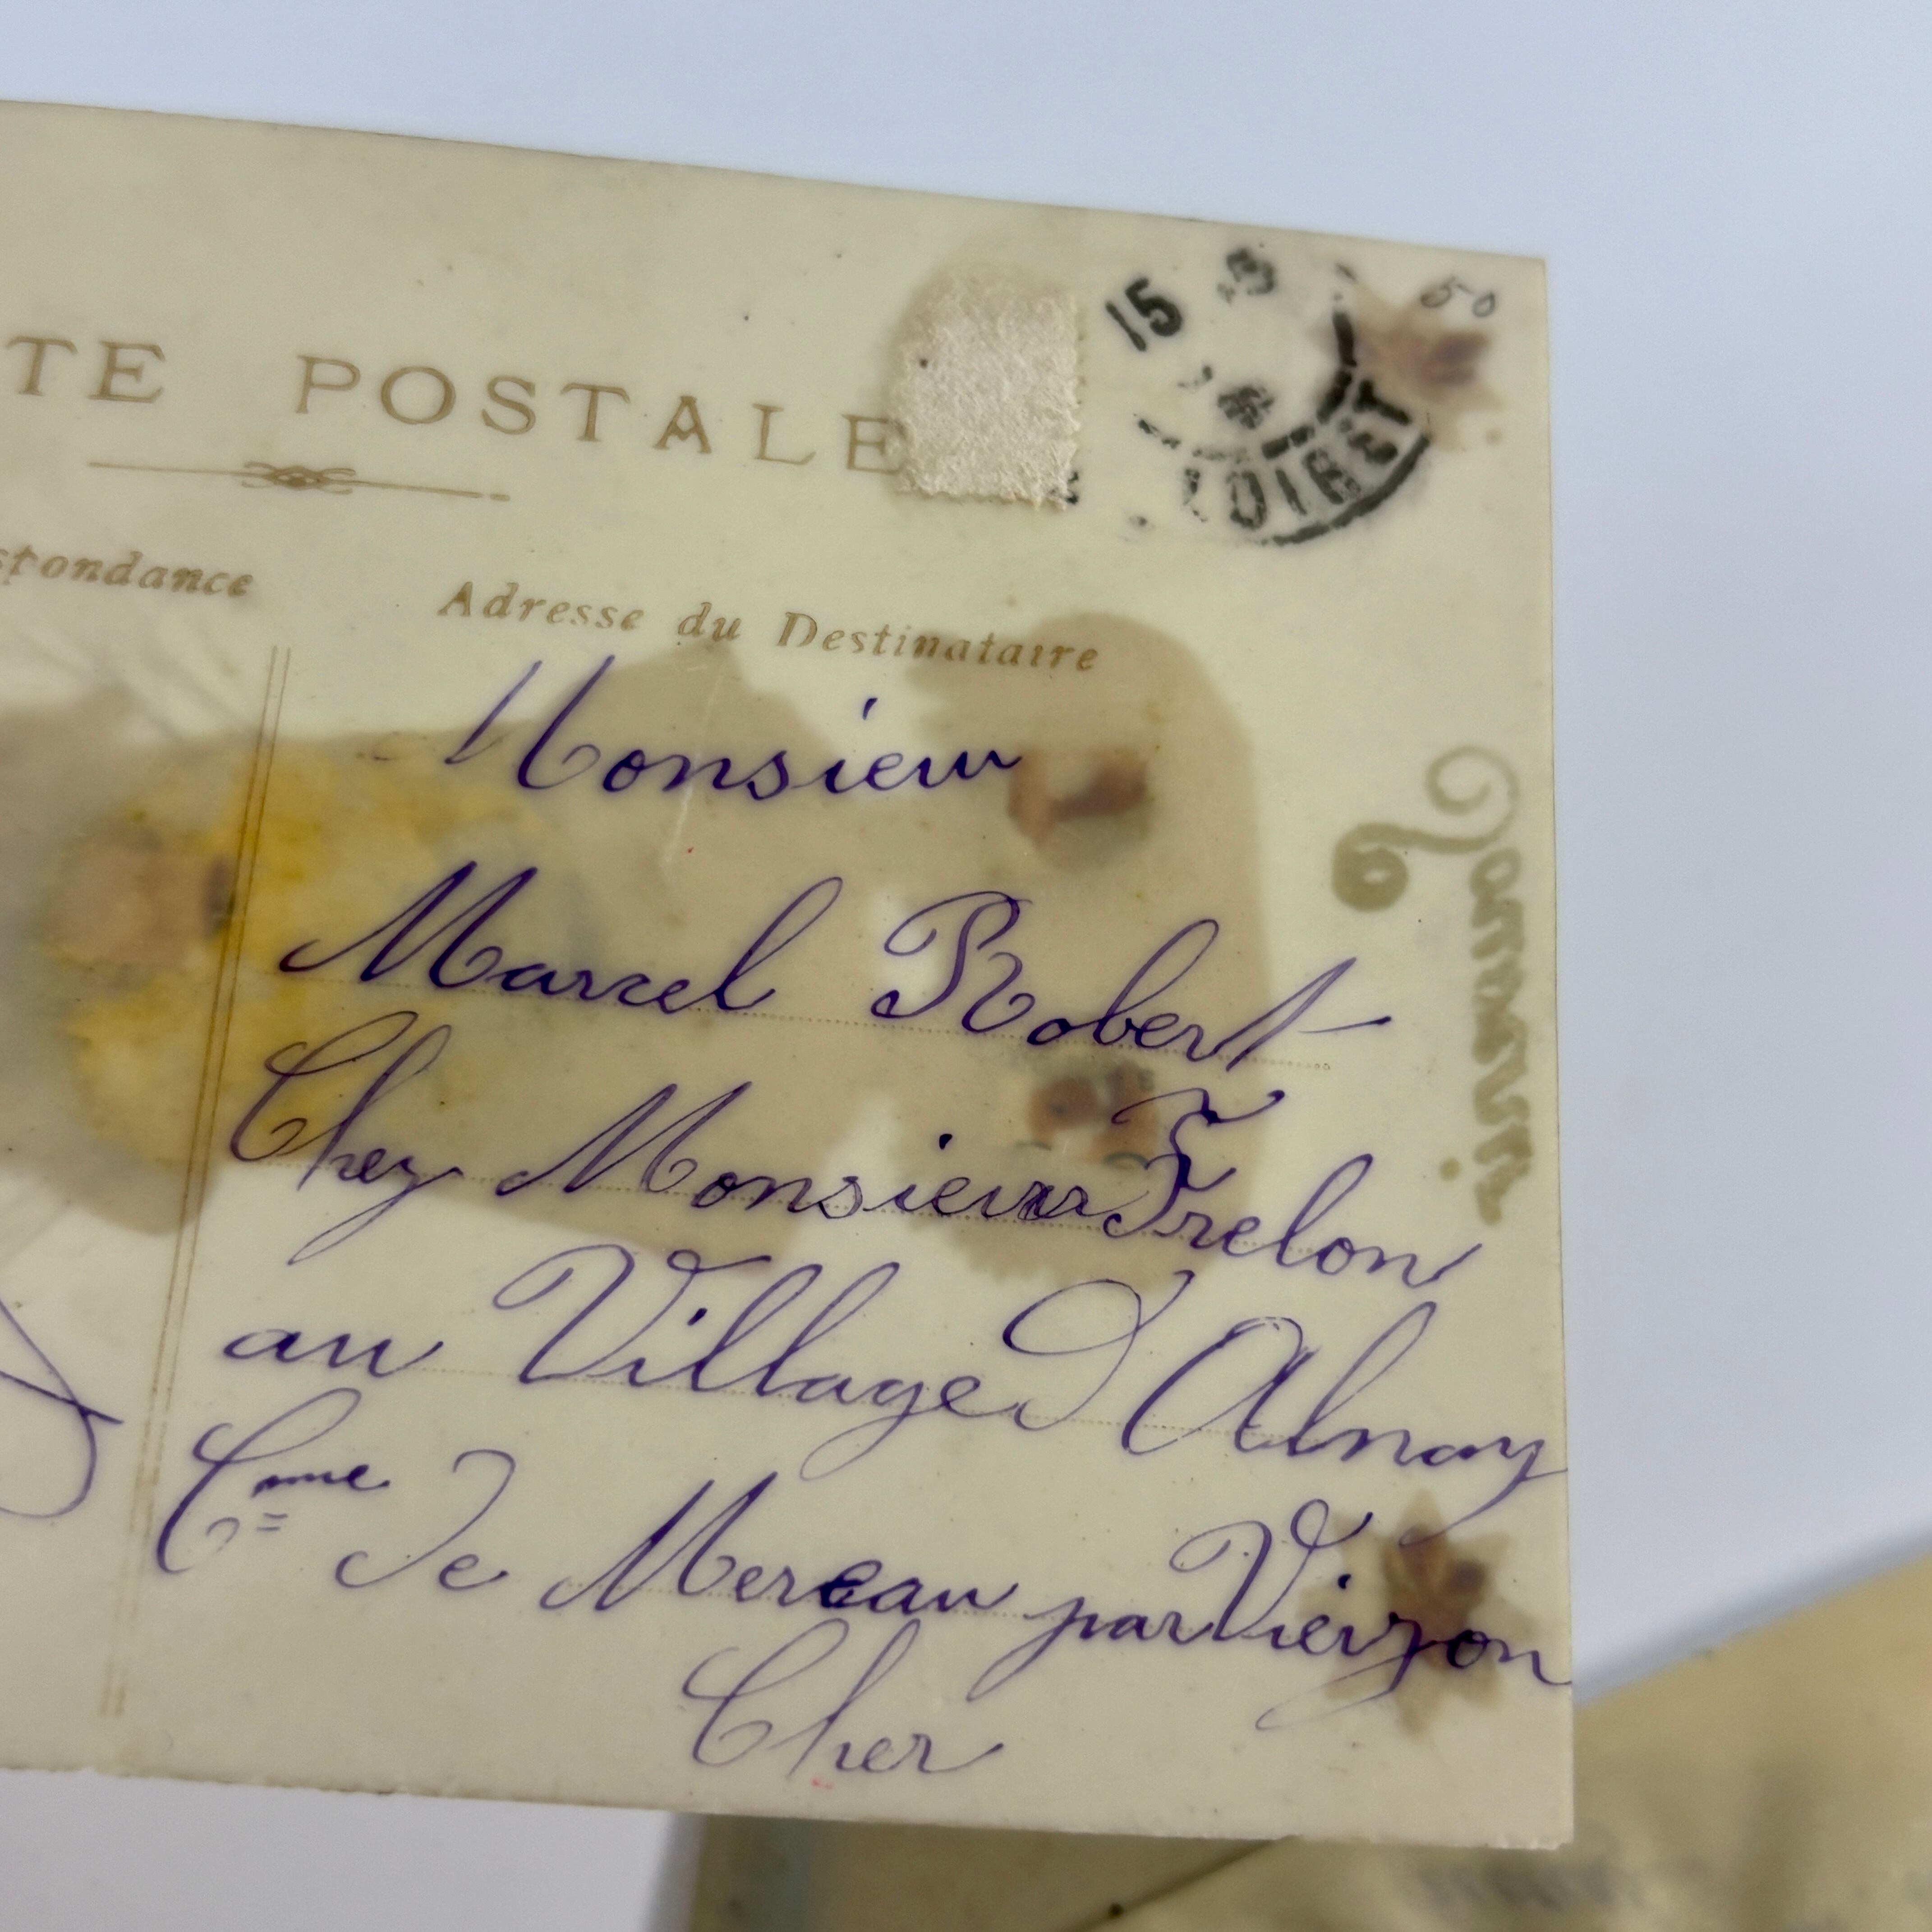 TE POSTALE
spondance
Adresse du Destinataire
15
LOIRET
50
Monsieur
Marcel Robert
Chez Monsieur Frelon
au Village d'Alnay
Cme de Mereau par Vierzon
Cher
6 Janvier